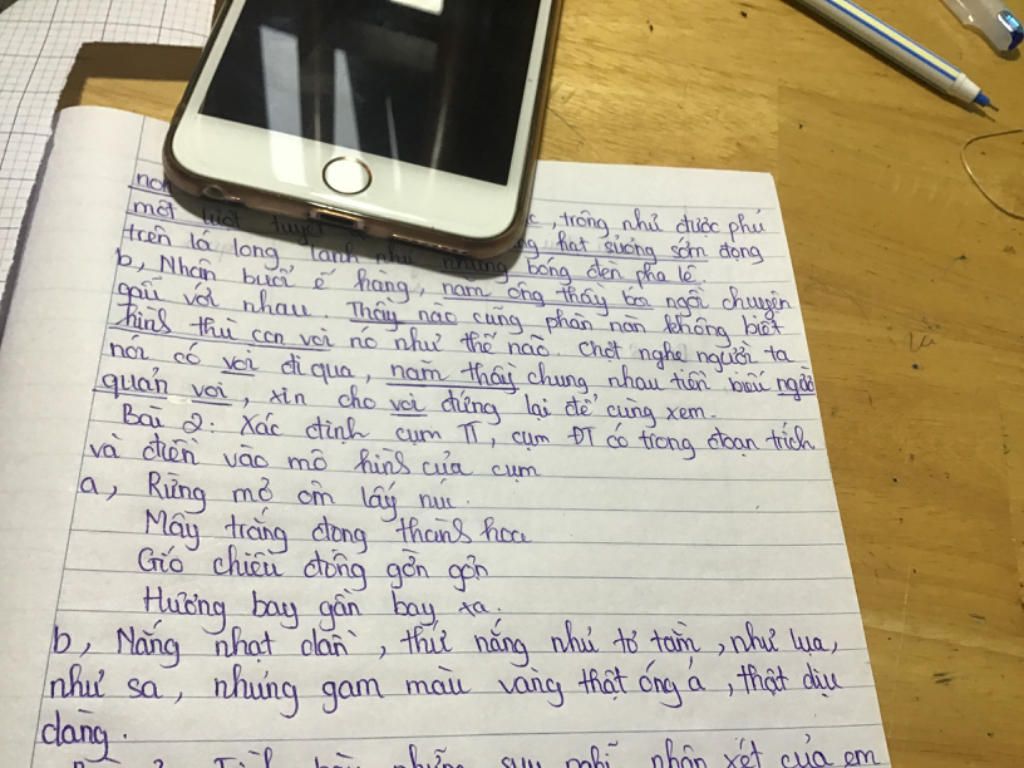 một lượt tuyết , trông như được phủ
trên lá long lanh như những bóng đèn pha lê. hạt sương sớm đọng
b, Nhân buổi ế hàng, năm ông thầy bói ngồi chuyện
gẫu với nhau. Thầy nào cũng phàn nàn không biết
hình thù con voi nó như thế nào. Chợt nghe người ta
nói có voi đi qua, năm thầy chung nhau tiền biếu người
quản voi, xin cho voi đứng lại để cùng xem.
Bài 2: Xác định cụm TT, cụm ĐT có trong đoạn trích
và điền vào mô hình của cụm
a, Rừng mơ ôm lấy núi.
Mây trắng đọng thành hoa
Gió chiều đông gờn gợn
Hương bay gần bay xa.
b, Nắng nhạt dần, thứ nắng như tơ tằm, như lụa,
như sa, những gam màu vàng thật óng ả, thật dịu
dàng.
nhận xét của em